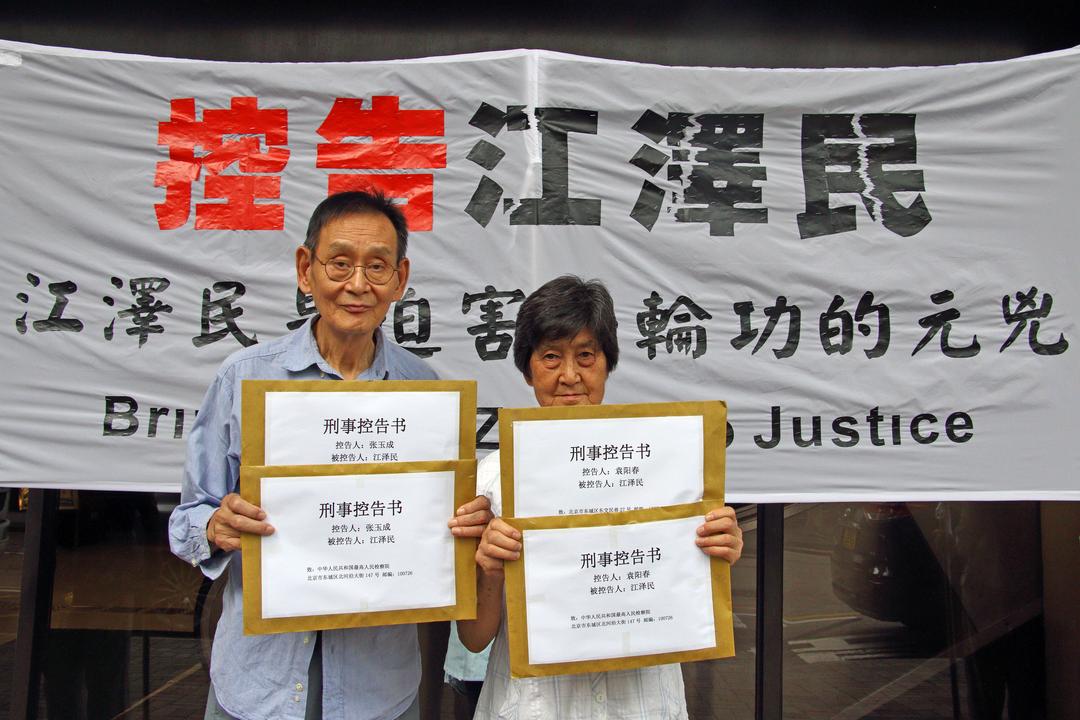 控告江澤民
江澤民是迫害輪功的元兇
Justice
刑事控告书
控告人：张玉成
被控告人：江泽民
刑事控告书
控告人：张玉成
被控告人：江泽民
致：中华人民共和国最高人民检察院
北京市东城区北河沿大街 147 号 邮编：100726
刑事控告书
控告人：袁阳春
被控告人：江泽民
致：北京市东城区东交民巷 27 号
刑事控告书
控告人：袁阳春
被控告人：江泽民
致：中华人民共和国最高人民检察院
北京市东城区北河沿大街 147 号 邮编：100726